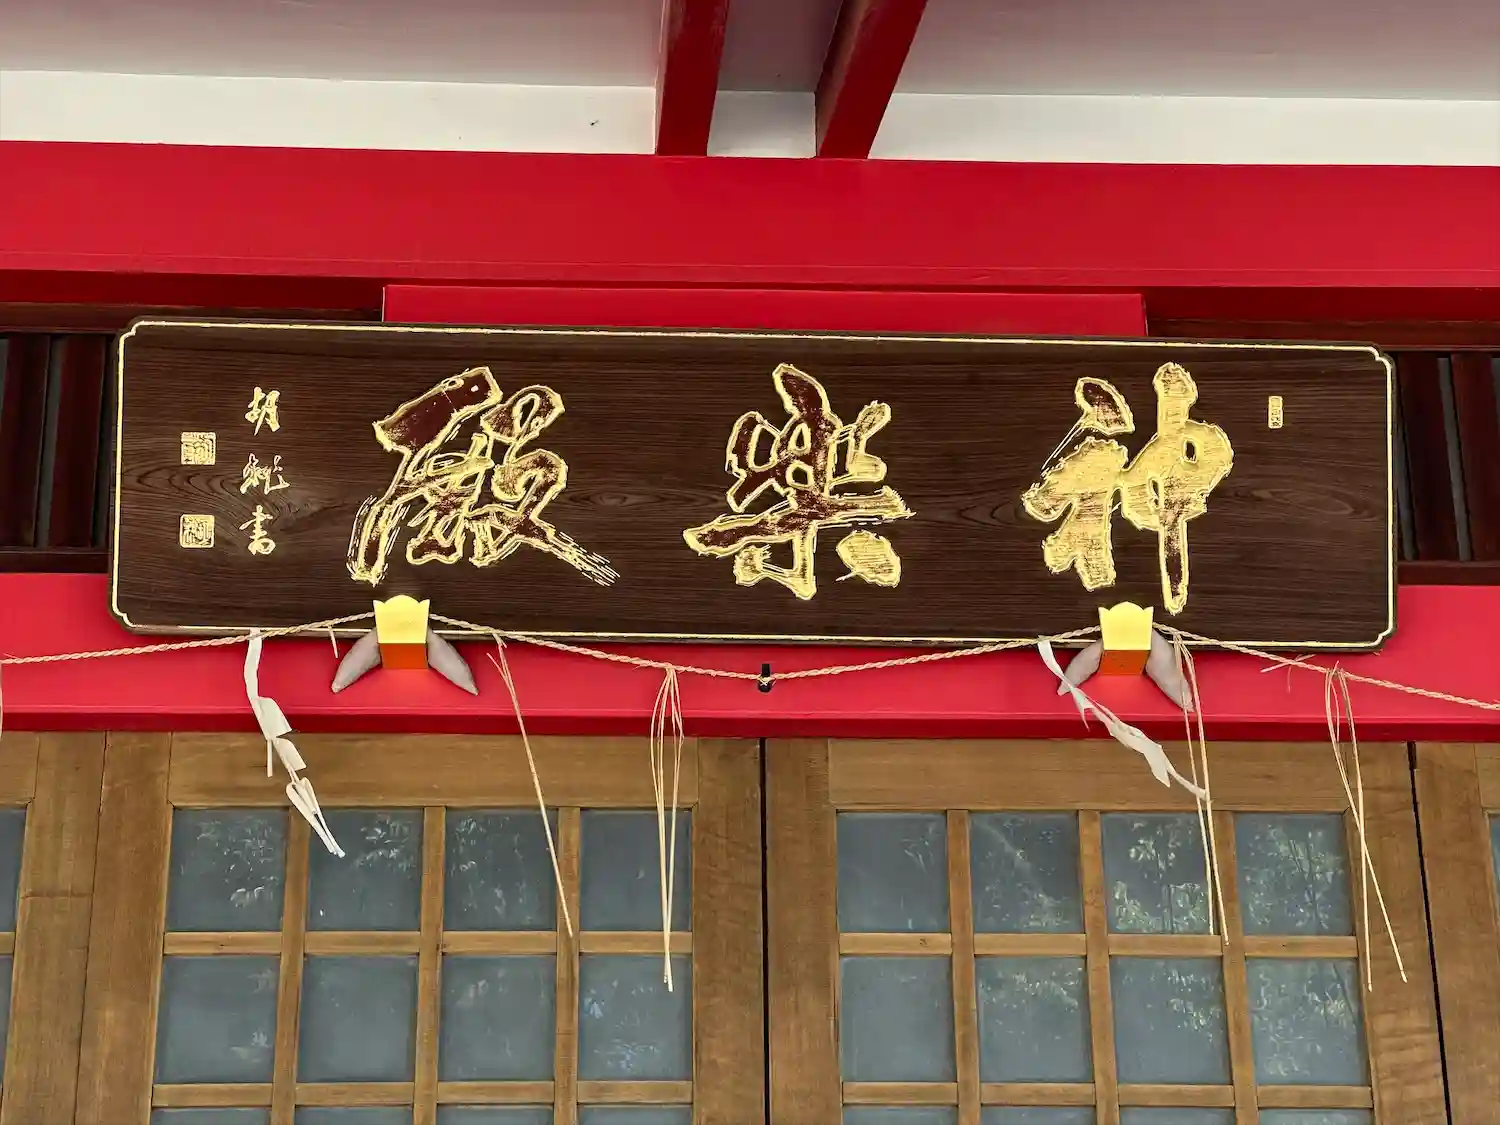 神楽殿
胡桃書